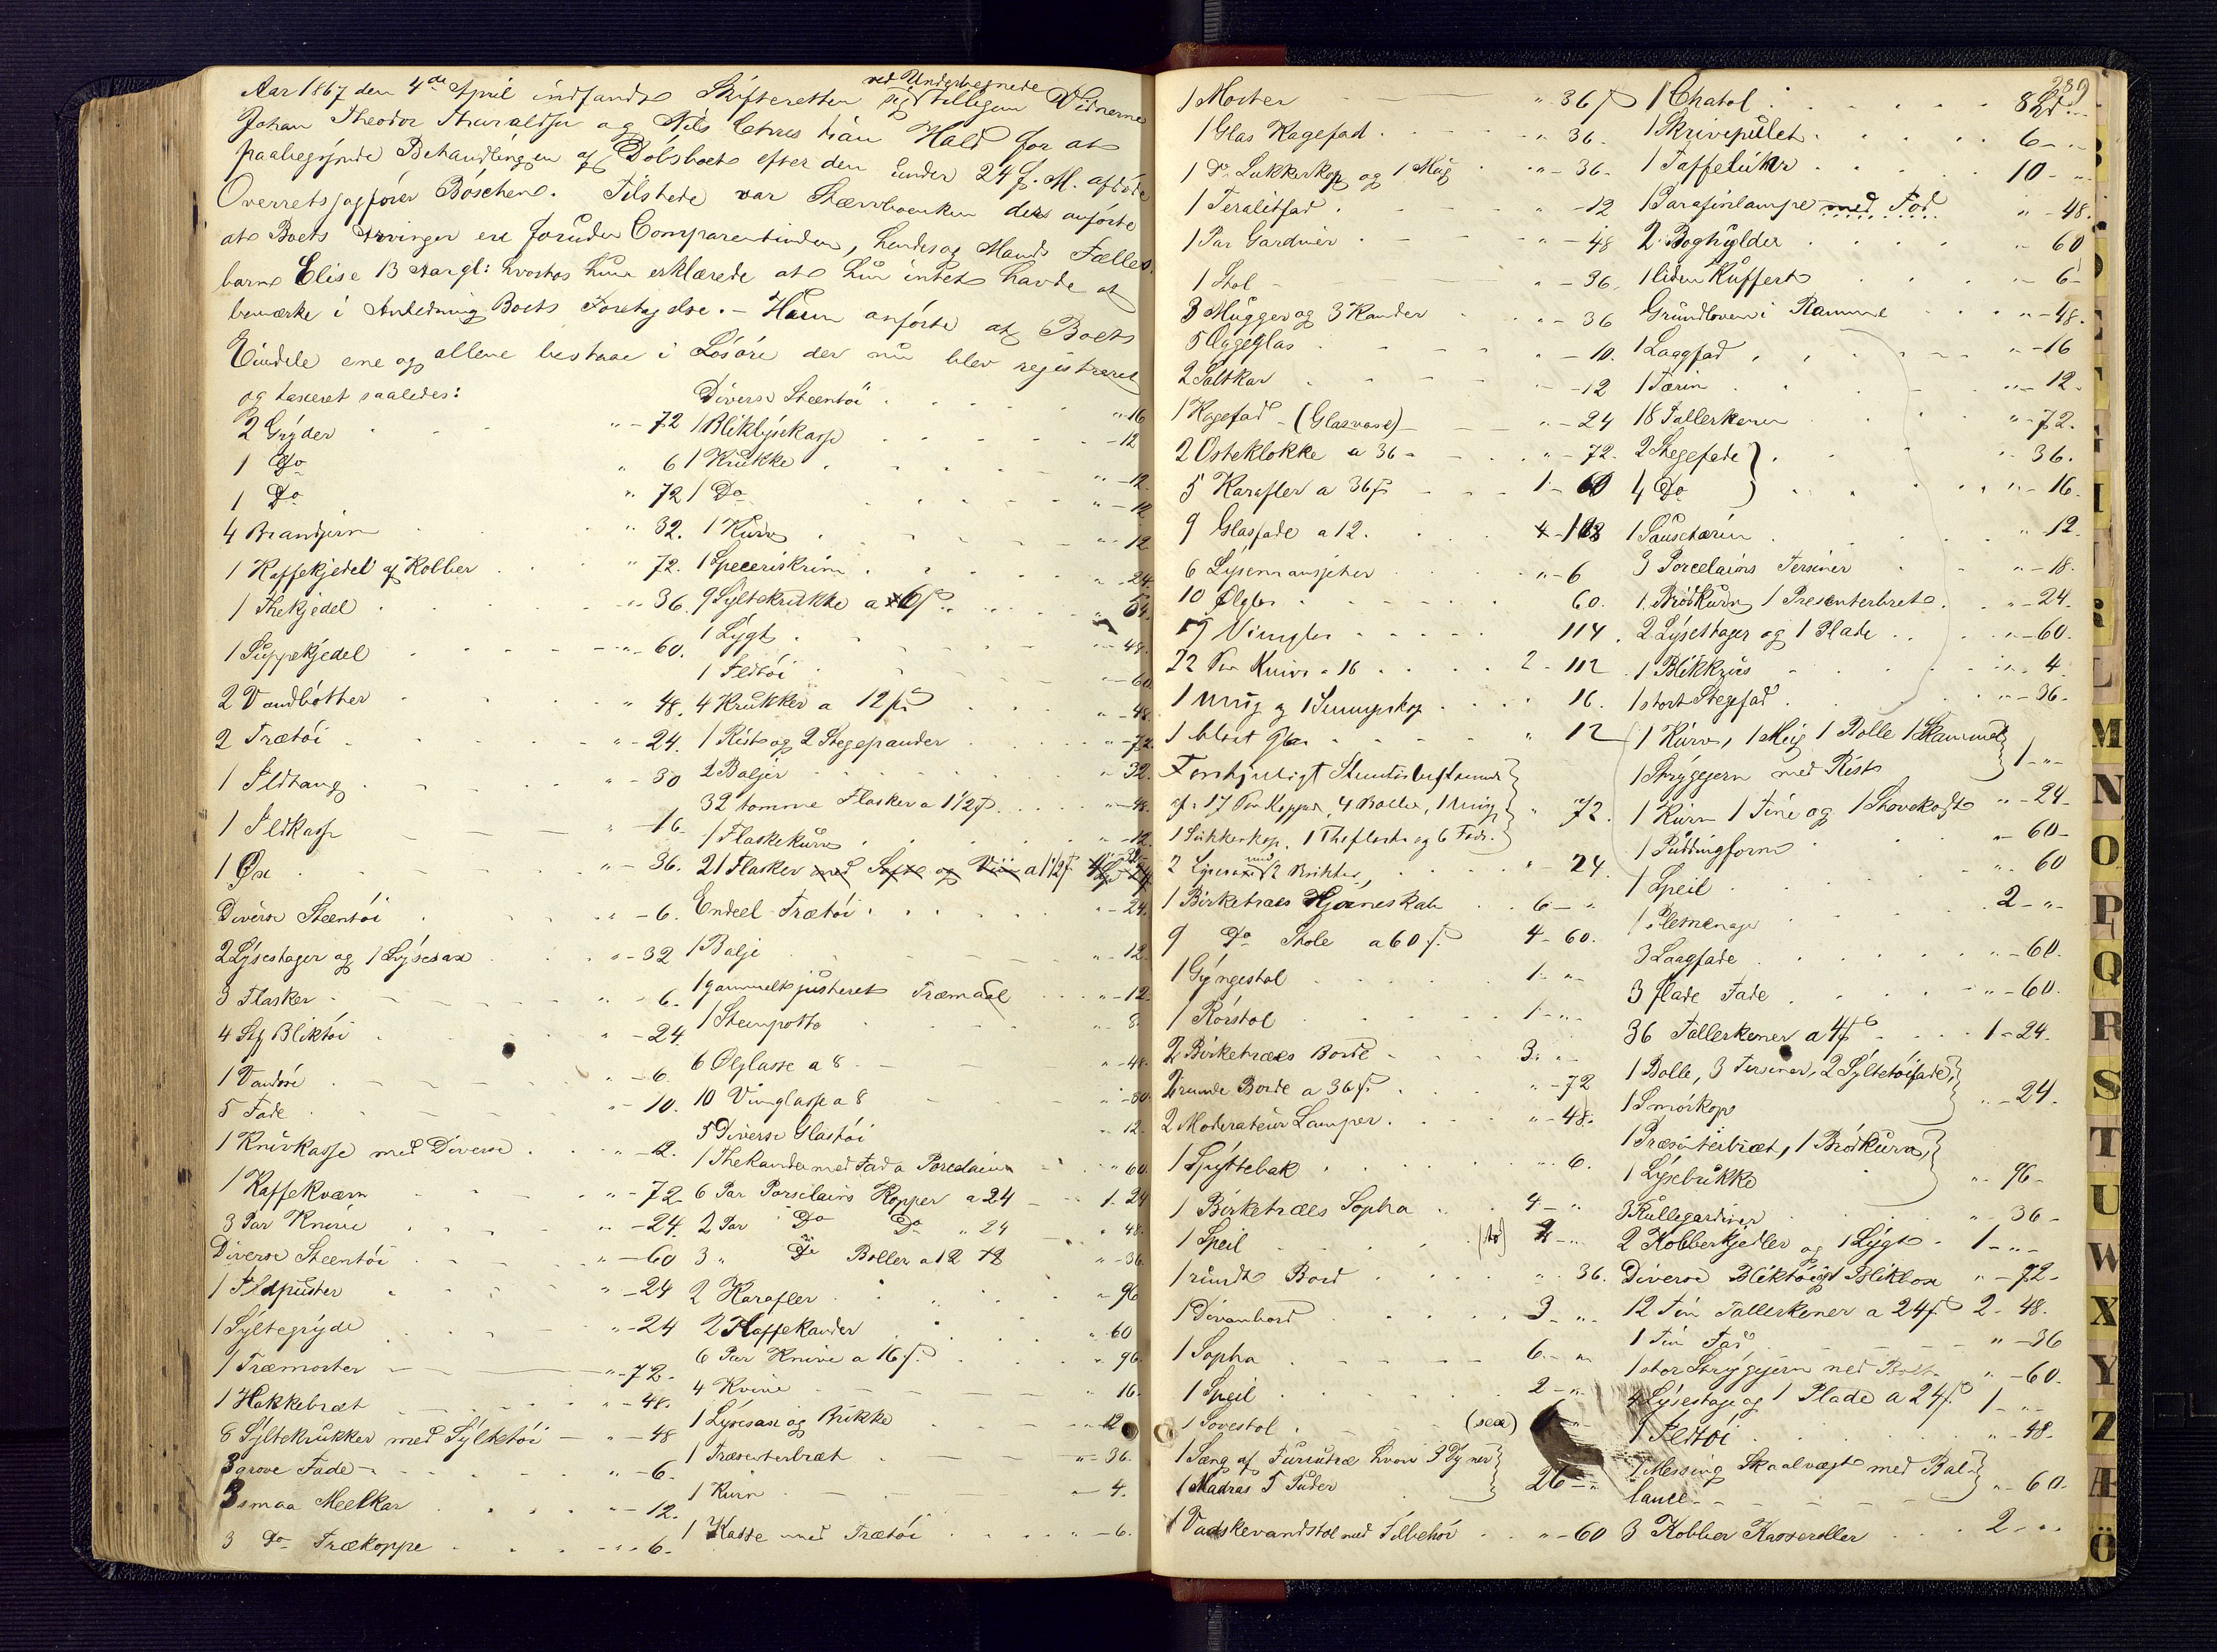 Aar 1867 den 4de April indfandt Skifteretten sig ved Undertegnede tilligem Vidnerne
Johan Theodor Thuraldsen og Nils Hald for at
paabegynde Behandlingen af Dödsboet efter den under 24 f. M. afdöde
Overretssagförer Böschen. Tilstede var der anförte
at Boets Arvinger ere foruden Comparentinden, hendes og Mands Fælles
barn Elise 13 Aar gl: hvorhos hun erklærede at hun intet havde at
bemærke i Anledning Boets Foretagelse. - Hun anförte at Boets
Eiendele ene og allene bestaae i Lösöre der nu blev registreret
og taxeret saaledes:
2 Gryder " - 72
1 Do " 6
1 Do " 72
4 Brandjern " 32.
1 Kaffekjedel af Kobber " 72.
1 Thekjedel " 36.
1 Suppekjedel - " - 60.
2 Vandbötter " 48.
2 Trætöi " - 24.
1 Ildtang " - 30
1 Ildkasse " - 16.
1 Öxe " - 36.
Diverse Steentöi " - 6.
2 Lysestager og 1 Lysesax " - 32
3 Flasker " - 6.
4 Stk Bliktöi " - 24
1 Vandöse " - 6.
5 Fade " - 10.
1 Knivkasse med Diverse " - 12.
1 Kaffekværn " - 72
3 Par Knive " - 24.
Diverse Steentöi " - 60
1 Ildpuster " - 24
1 Syltegryde " - 24
1 Træmorter " - 72.
1 Hakkebræt " - 48.
8 Syltekrukker med Syltetöi " - 48
3 grove Fade " - 6.
3 smaa Meelkar " - 12.
3 Do Trækoppe " - 6.
Diverse Steentöi " - 16
1 Bliklysekasse " - 12
1 Krukke " - 12.
1 Do " - 12.
1 Kurv " - 12
1 Speceriskrin " - 24.
9 Syltekrukke a 6 ſ " 54.
1 Lygt " - 48.
1 Ildtöi " - 60
4 Krukker a 12 ſ " - 48.
1 Rist og 2 Stegepander " - 72
2 Baljer " - 32.
32 tomme Flasker a 1 1/2 ſ " - 48.
1 Flaskekurv " - 12.
21 Flasker med og Viin a 1 1/2 ſ
Endeel Trætöi " - 24.
1 Balje " - 12.
1 gammelt justeret Træmaal " - 12.
1 Steenpotte " 8.
6 Ölglasse a 8 " - 48.
10 Viinglasse a 8 " - 80.
5 Diverse Glastöi " 12.
1 Thekande med Fad a Porcelain " 60
6 Par Porselains Kopper a 24 1. 24
2 Par Do Do " 24 " 48.
3 " Do Boller a 12 " - 36
2 Karafler " 96
2 Kaffekander " 60
6 Par Knive a 16 ſ " 96.
4 Knive " 16.
1 Lysesax og Brikke " 12
1 Præsenterbræt " - 36.
1 Kurv " 4.
1 Kasse med Trætöi " - 6.
289
1 Morter " 36 ſ
1 Glas Kagefad " 36.
1 Do Sukkerkop og 1 Mug " 36.
1 Teralitfad " - 12
1 Par Gardiner " - 48
1 Stol " - 36.
3 Mugger og 3 Kander " - 36
5 Æggeglas " - 10.
2 Saltkar " - 12
1 Kagefad - (Glasvase) " - 24
2 Osteklokke a 36 " - 72.
5 Karafler a 36 ſ 1 - 60
9 Glasfade a 12. 108
6 Lysemansjetter " - 6
10 Ölglas 60.
19 Vinglas 114.
22 Par Knive a 16 2 - 112
1 Mug og 1 Sennepskop 16.
1 blaat Glas " 12
Forskjelligt
af: 17 Par Kopper, 4 Boller, 1 Mug " 72.
1 Sukkerkop, 1 Theflaske og 6 Fade.
2 Lysesaxe med 2 Brikker, " 24.
1 Birketræes Hjørneskab 6 - "
9 Do Stole a 60 ſ. 4 - 60.
1 Gyngestol 1 - "
1 Rörstol 1 - "
2 Birketræes Borde 3 - "
2 runde Borde a 36 ſ. " - 72
2 Moderateur Lamper. " - 48.
1 Spyttebak " 6.
1 Birketræes Sopha 4 - "
1 Speil
1 rundt Bord " 36.
1 Divanbord 3 - "
1 Sopha 6 - "
1 Speil 2 - "
1 Sovestol (sex)
1 Seng af Furutræ hvori 3 Dyner
1 Madras 5 Puder 26 - "
1 Vadskevandstol med Tilbehör " - 60
1 Chatol 8 Spd "
1 Skrivepulet 6 - "
1 Taffeluhr 10 - "
1 Parafinlampe med Fod " - 48.
2 Boghylder " 60
1 liden Kuffert " - 6
Grundloven i Ramme " - 48.
1 Laagfad " - 16
1 Tærin " - 12.
18 Tallerkener " - 72.
2 Stegefade " 36.
4 Do " - 16.
1 Sausetærin " 12.
3 Porcelains Terriner " - 18.
1 Brödkurv, 1 Presenterbret " - 24.
2 Lysestager og 1 Plade " - 60.
1 Blikkrus " 4.
1 stort Stegefad " - 36.
1 Kurv, 1 Mug 1 Bolle 1 Skammel
1 Strygejern med Rist 1 - "
1 Kurv 1 Tine og 1 Stövekost " - 24
1 Puddingform " - 60
1 Speil " 60
1 Plemenage 2 - "
3 Laagfade " - 60.
3 flade Fade " - 60.
36 Tallerkener a 4 ſ 1 - 24.
1 Bolle, 3 Terriner, 2 Syltetöifade,
1 Smörkop " - 24.
1 Præsenterbræt, 1 Brödkurv,
1 Lysebrikke " 96 -
3 Rullegardiner " 36 -
2 Kobberkjedler og 1 Lygt 1 - "
Diverse Bliktöi og 1 Blikboxe " - 72 -
12 Tin Tallerkener a 24 ſ 2 - 48.
1 Tin Fad " - 36
1 stor Strygejern med Bolt " - 60.
4 Lysestage og 1 Plade a 24 ſ 1 - "
1 Ildtöi " - 48.
1 Messing Skaalvægt med Bal-
lance " - 60.
3 Kobber Kasseroller 2 - "
M
N
O
P
Q
R
S
T
U
W
X
Y
Z
Æ
Ö